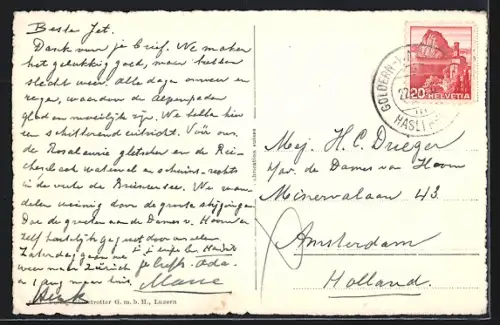 Beste Jet.
Dank voor je brief. We maken
het gelukkig goed, maar hebben
slecht weer. Alle dagen onweer en
regen, waardoor de Alpenpaden
glad en moeilijk zijn. We hebben hier
een schitterend uitzicht. Vóór ons
de Rosalaui gletscher en de Rei-
chenbach waterval en schuins-rechts
in de verte de Brienzersee. We wan-
delen weinig door de groote stijgingen
Doe de groeten aan de Dames v. Hoorn en
zelf hartelijk gegroet door ons allen
Zaterdag gaan we
weer naar Zürich
en 1 Aug. naar huis.
je liefh.
Henk
GOLDERN-
HASLI
20
HELVETIA
Mej. H. C. Drieger
p/a. de Dames van Hoorn
Minervalaan 43
Amsterdam
Holland.
G. m. b. H., Luzern